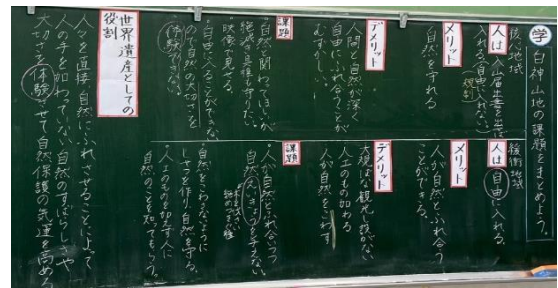 学 白神山地の課題をまとめよう。
核心地域
人は 入山届出書を出せば
入れる(自由に入れない)
規制
メリット
自然を守れる
デメリット
人間と自然が深く
自由にふれ合うことが
むずかしい
課題
自然と関わっていいが
映像で見せる。
自由に入ることができない
自然の大切さを
体験できない
緩衝地域
人は 自由に入れる。
メリット
人が自然とふれ合う
ことができる。
デメリット
大規ぼな観光し設がない
人工のもの加わる
人が自然をこわす
課題
人が自然とふれ合いつつ
自然にえいきょうを与えない。
自然をこわさないように
しせつを作り、自然を守る。
人工のものを加えず人に
自然のことを知ってもらう。
世界遺産としての
役割
人々を直接自然にふれさせることによって
人の手を加わっていない自然のすばらしさや
大切さを体験させて自然保護の気運を高める